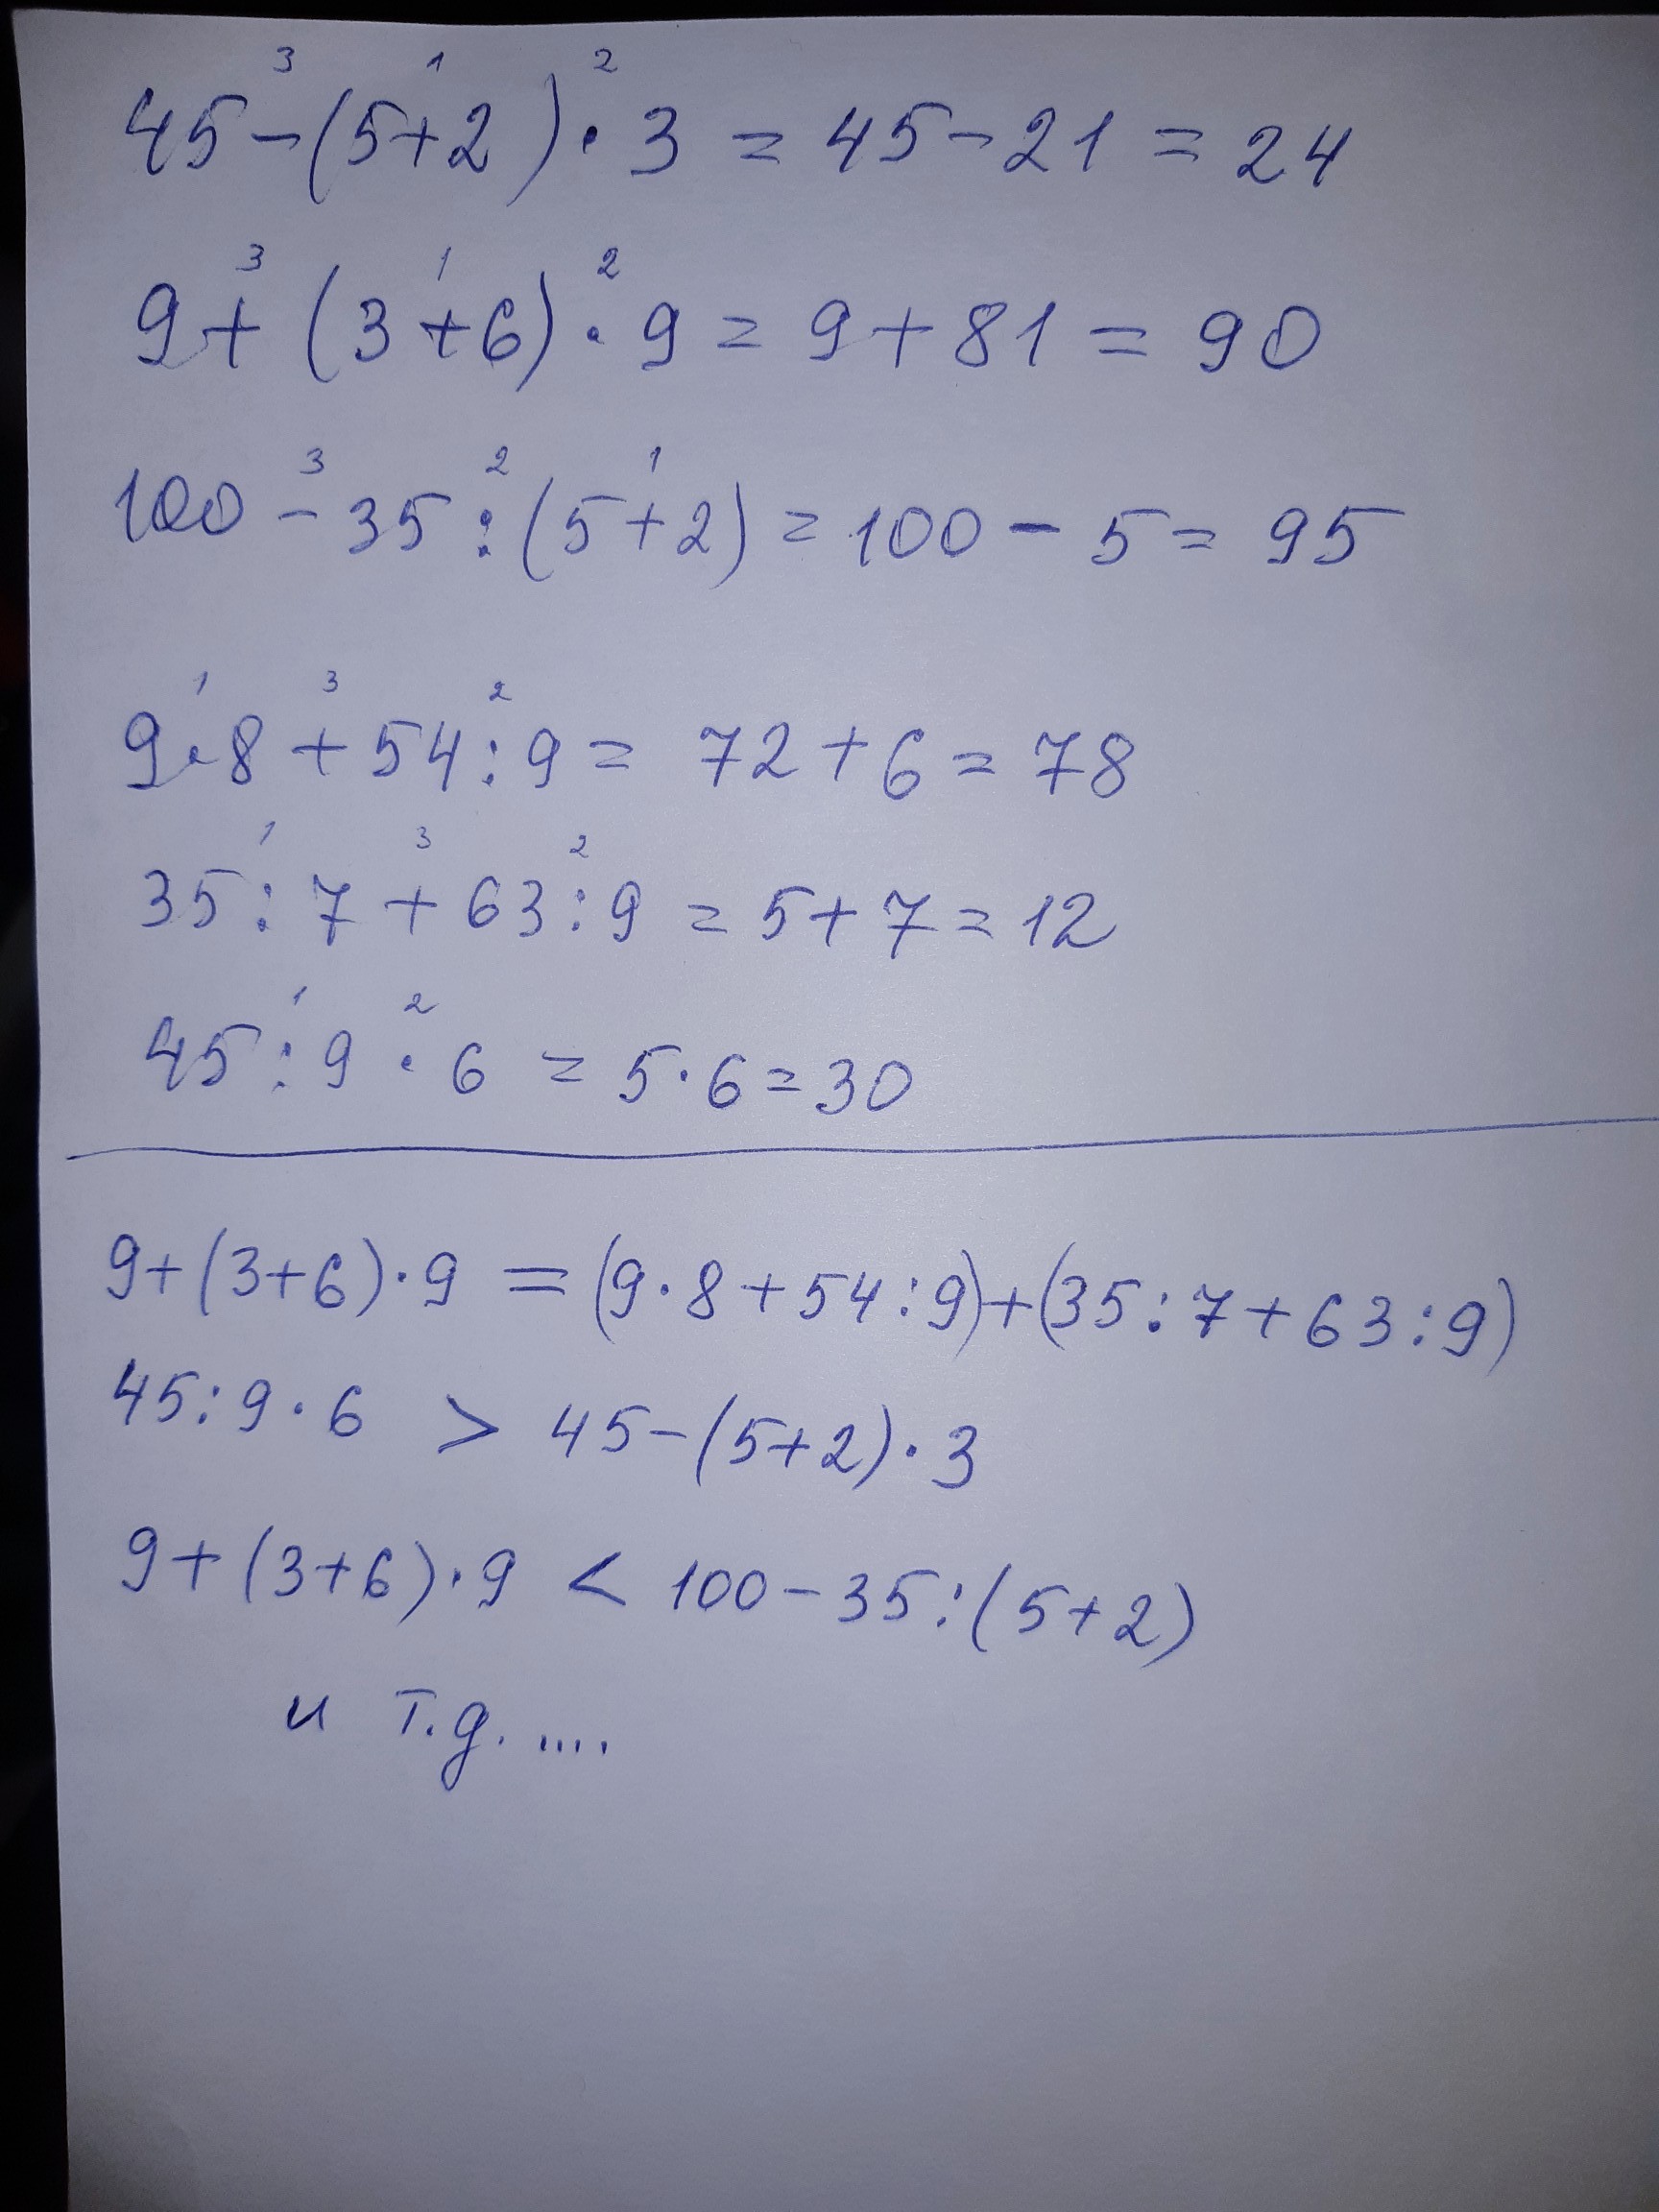 3 1 2
45-(5+2)·3=45-21=24
3 1 2
9+(3+6)·9=9+81=90
3 2 1
100-35:(5+2)=100-5=95
1 3 2
9·8+54:9=72+6=78
1 3 2
35:7+63:9=5+7=12
1 2
45:9·6=5·6=30
9+(3+6)·9=(9·8+54:9)+(35:7+63:9)
45:9·6 > 45-(5+2)·3
9+(3+6)·9 < 100-35:(5+2)
и т.д. ....